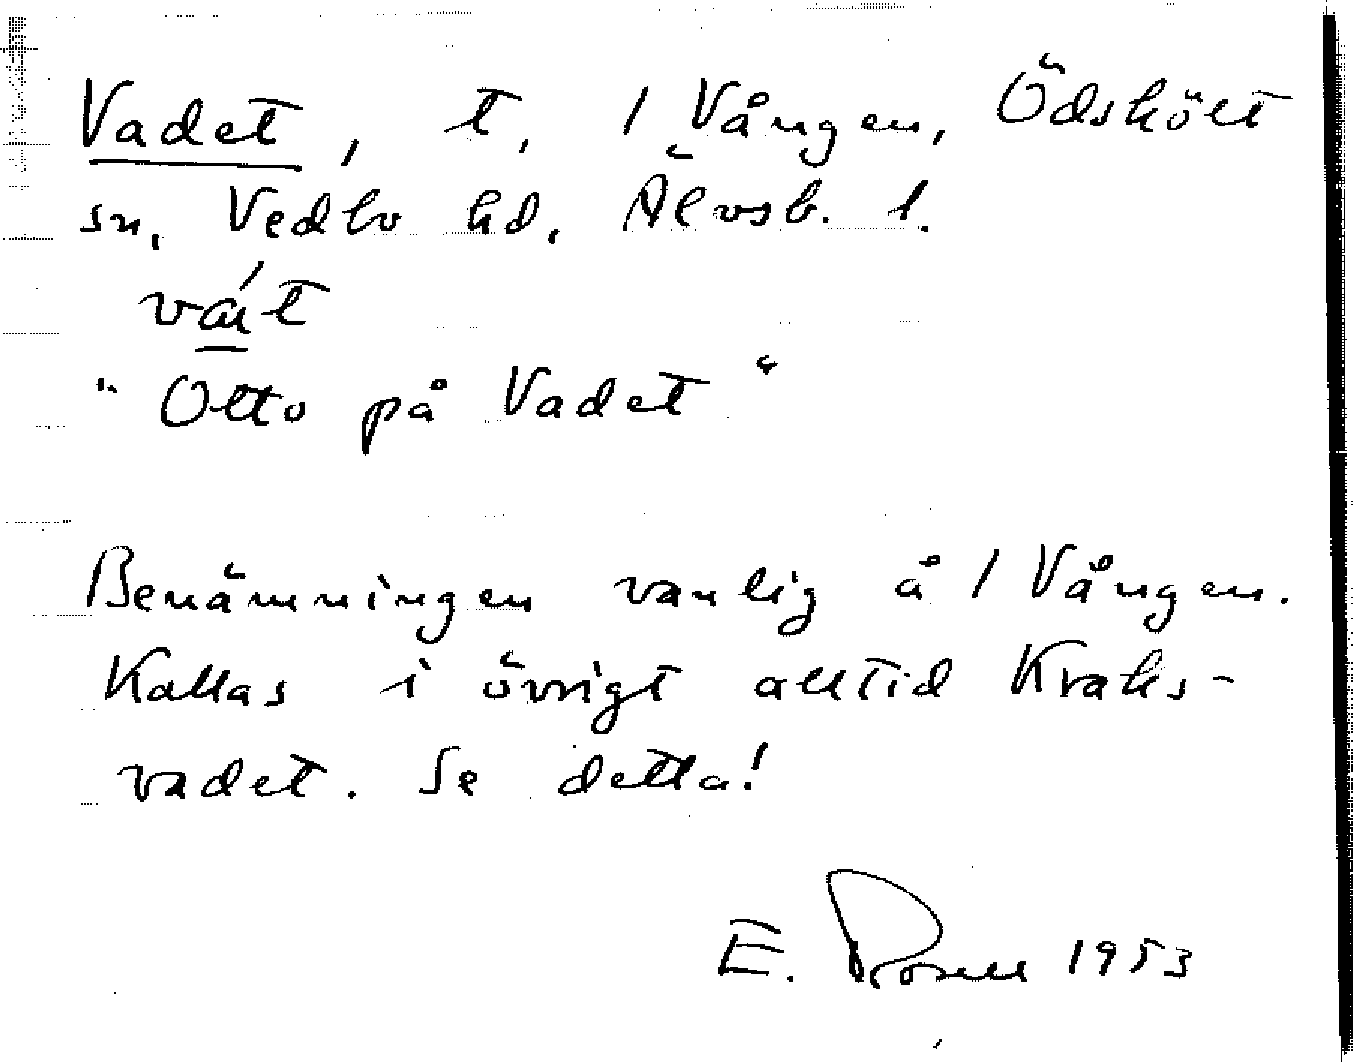 Vadet, t, 1 Vången, Ödskölt
sn, Vedbo hd, Älvsb. l.
vát
"Otto på Vadet"
Benämningen vanlig å 1 Vången.
Kallas i övrigt alltid Kraks-
vadet. Se detta!
E. Rosell 1953